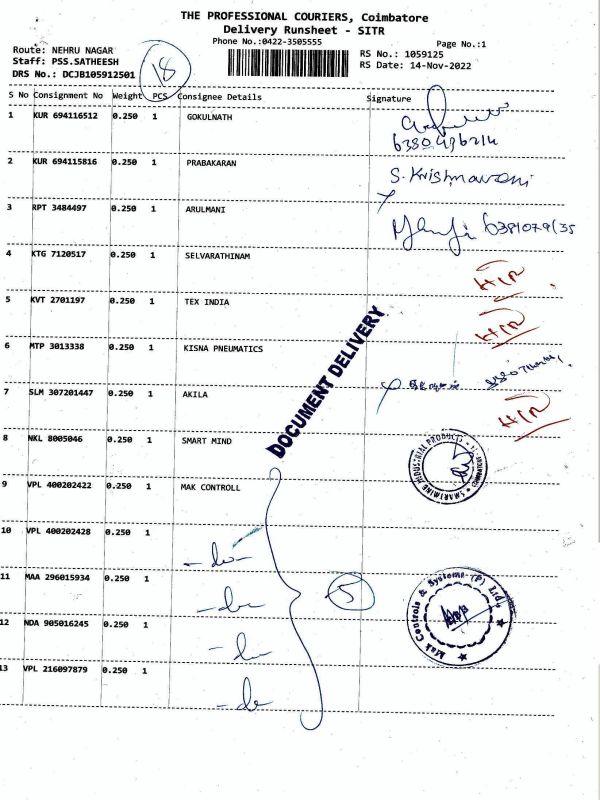 THE PROFESSIONAL COURIERS, Coimbatore
Delivery Runsheet - SITR
Phone No.:0422-3505555
Page No.:1
Route: NEHRU NAGAR
Staff: PSS.SATHEESH
DRS No.: DCJB105912501
18
RS No.: 1059125
RS Date: 14-Nov-2022
S No Consignment No Weight PCS Consignee Details Signature
1 KUR 694116512 0.250 1 GOKULNATH
2 KUR 694115816 0.250 1 PRABAKARAN S. Krishnaveni
3 RPT 3484497 0.250 1 ARULMANI
4 KTG 7120517 0.250 1 SELVARATHINAM
5 KVT 2701197 0.250 1 TEX INDIA
6 MTP 3013338 0.250 1 KISNA PNEUMATICS
7 SLM 307201447 0.250 1 AKILA
8 NKL 8005046 0.250 1 SMART MIND
DOCUMENT DELIVERY
9 VPL 400202422 0.250 1 MAK CONTROLL
10 VPL 400202428 0.250 1 -do-
11 MAA 296015934 0.250 1 -do-
5
Mak Controls & Systems (P) Ltd.
12 NDA 905016245 0.250 1 -do-
13 VPL 216097879 0.250 1 -do-